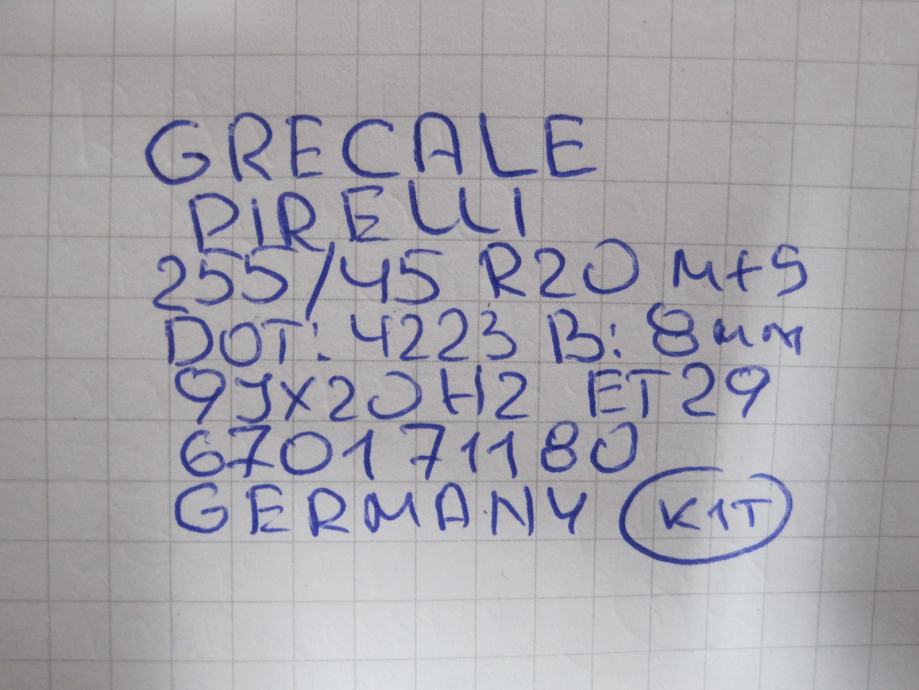 GRECALE
PIRELLI
255/45 R20 M+S
DOT: 4223 B: 8mm
9JX20H2 ET29
670171180
GERMANY K1T